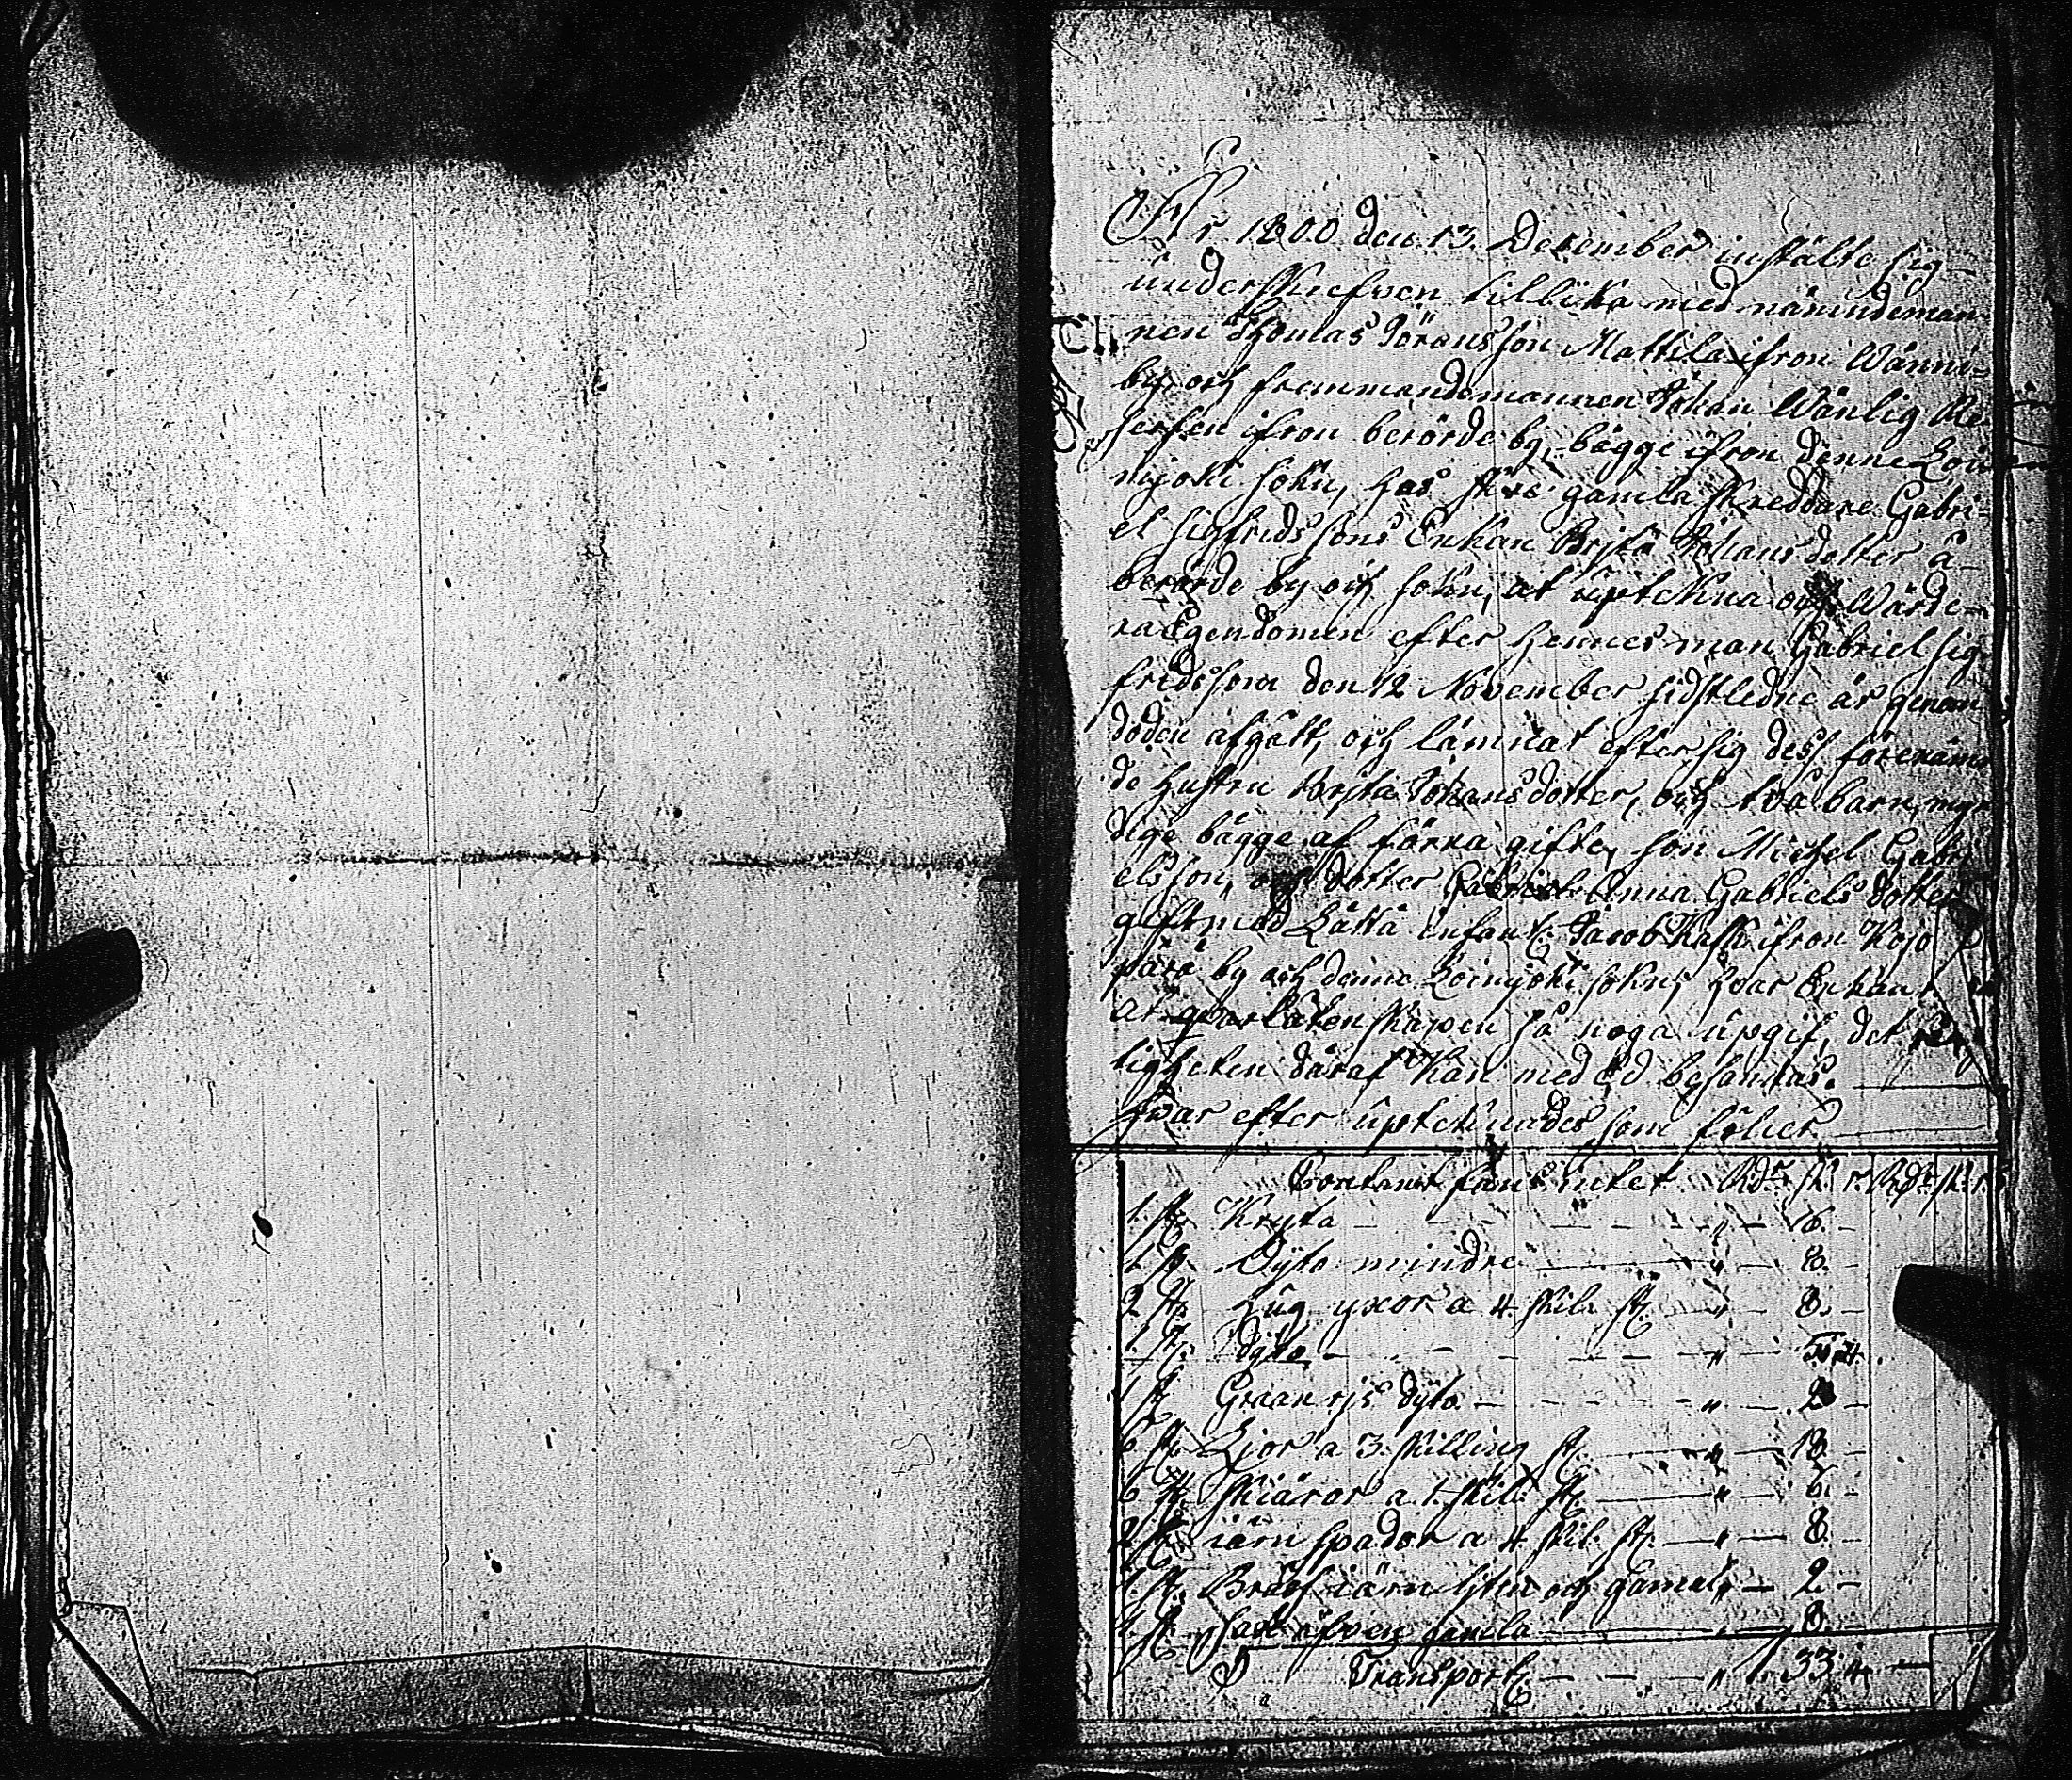 År 1800 den 13. December instälte sig
underskrefven tillika med nämndeman
nen Thomas Jöransson Mattila ifron Wänni=
by och frammandemannen Johan Wänlig
ifron berörde by, bägge ifron denne Loi
mjoki sokn, hos gamla skreddare Gabri=
el Sigfridssons Enkan Brita Johansdotter å
berörde by och sokn, at uptekna och Wärde=
ra Egendomen efter hennes man Gabriel Sig
fridsson den 12 November sidstledne år genom
döden afgått, och lämnat efter sig dess förenäm
de hustru Brita Johansdotter, och två barn, myn
dige bägge af förra gifte, son Michel Gabri
elsson, och dotter Anna Gabriels dotter
gift med Jacob Kask ifron Kojo
by och denne Loimjoki sokn, hvar Enkan
at qvarlåtenskapen så noga upgif, det
ligheten däraf kan med Ed besannas.
hvar efter uptecknades som följer
Contant fans intet Rdr sk r. Rdr sk r.
1. st. Kryta — " — 16. —
1. st. Dyto mindre — " — 8. —
2 st. hug yxor a 4 skil. st. — " — 8. —
1. st. dyto — "
1 st Graan rjs dyto — " — 2 —
6 st. Ljor a 3 skilling st. — " — 18 —
6 st. Skiäror a 1. skil. st. — " — 6. —
2 st järn spador a 4 skil. st. — " — 8 —
1. st. järn liten och gamal " — 2 —
1. st. gamla — " — 8. —
Transport — " 1. 33. 4. —